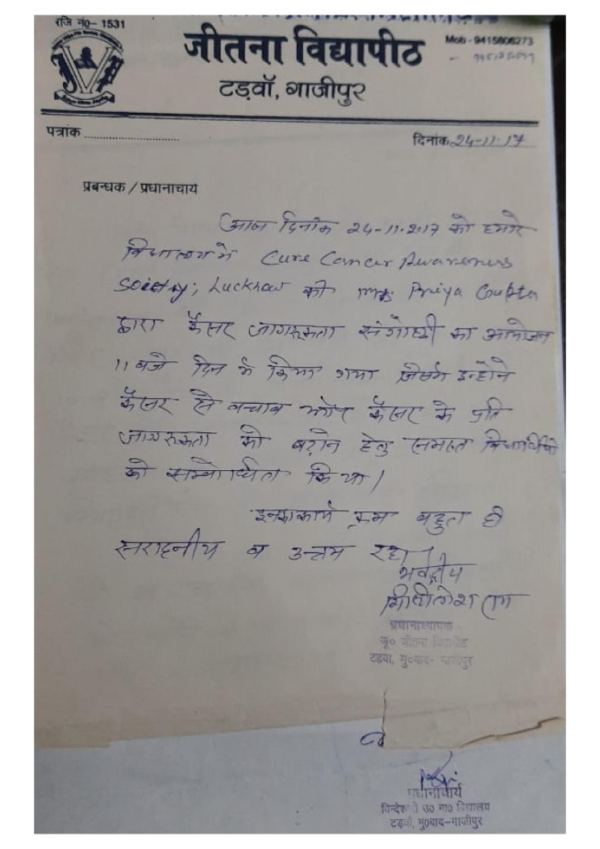 रजि नं०- 1531
जीतना विद्यापीठ
Mob - 9415608273
टड़वाँ, गाजीपुर
पत्रांक
दिनांक 24-11-17
प्रबन्धक / प्रधानाचार्य
आज दिनांक 24-11-2017 को हमारे
विद्यालय में Cure Cancer Awareness
Society, Lucknow की Mrs Priya Gupta
द्वारा कैंसर जागरूकता संगोष्ठी का आयोजन
11 बजे दिन में किया गया जिसमें इन्होंने
कैंसर से बचाव और कैंसर के प्रति
जागरूकता को बढ़ाने हेतु समस्त विद्यार्थियों
को सम्बोधित किया।
इनका कार्य बहुत ही
सराहनीय व उत्तम रहा।
भवदीय
प्रधानाध्यापक
जू० जीतना विद्यापीठ
टडवा, मु०बाद- गाजीपुर
प्रधानाचार्य
उ० मा० विद्यालय
टडवाँ, मु०बाद-गाजीपुर